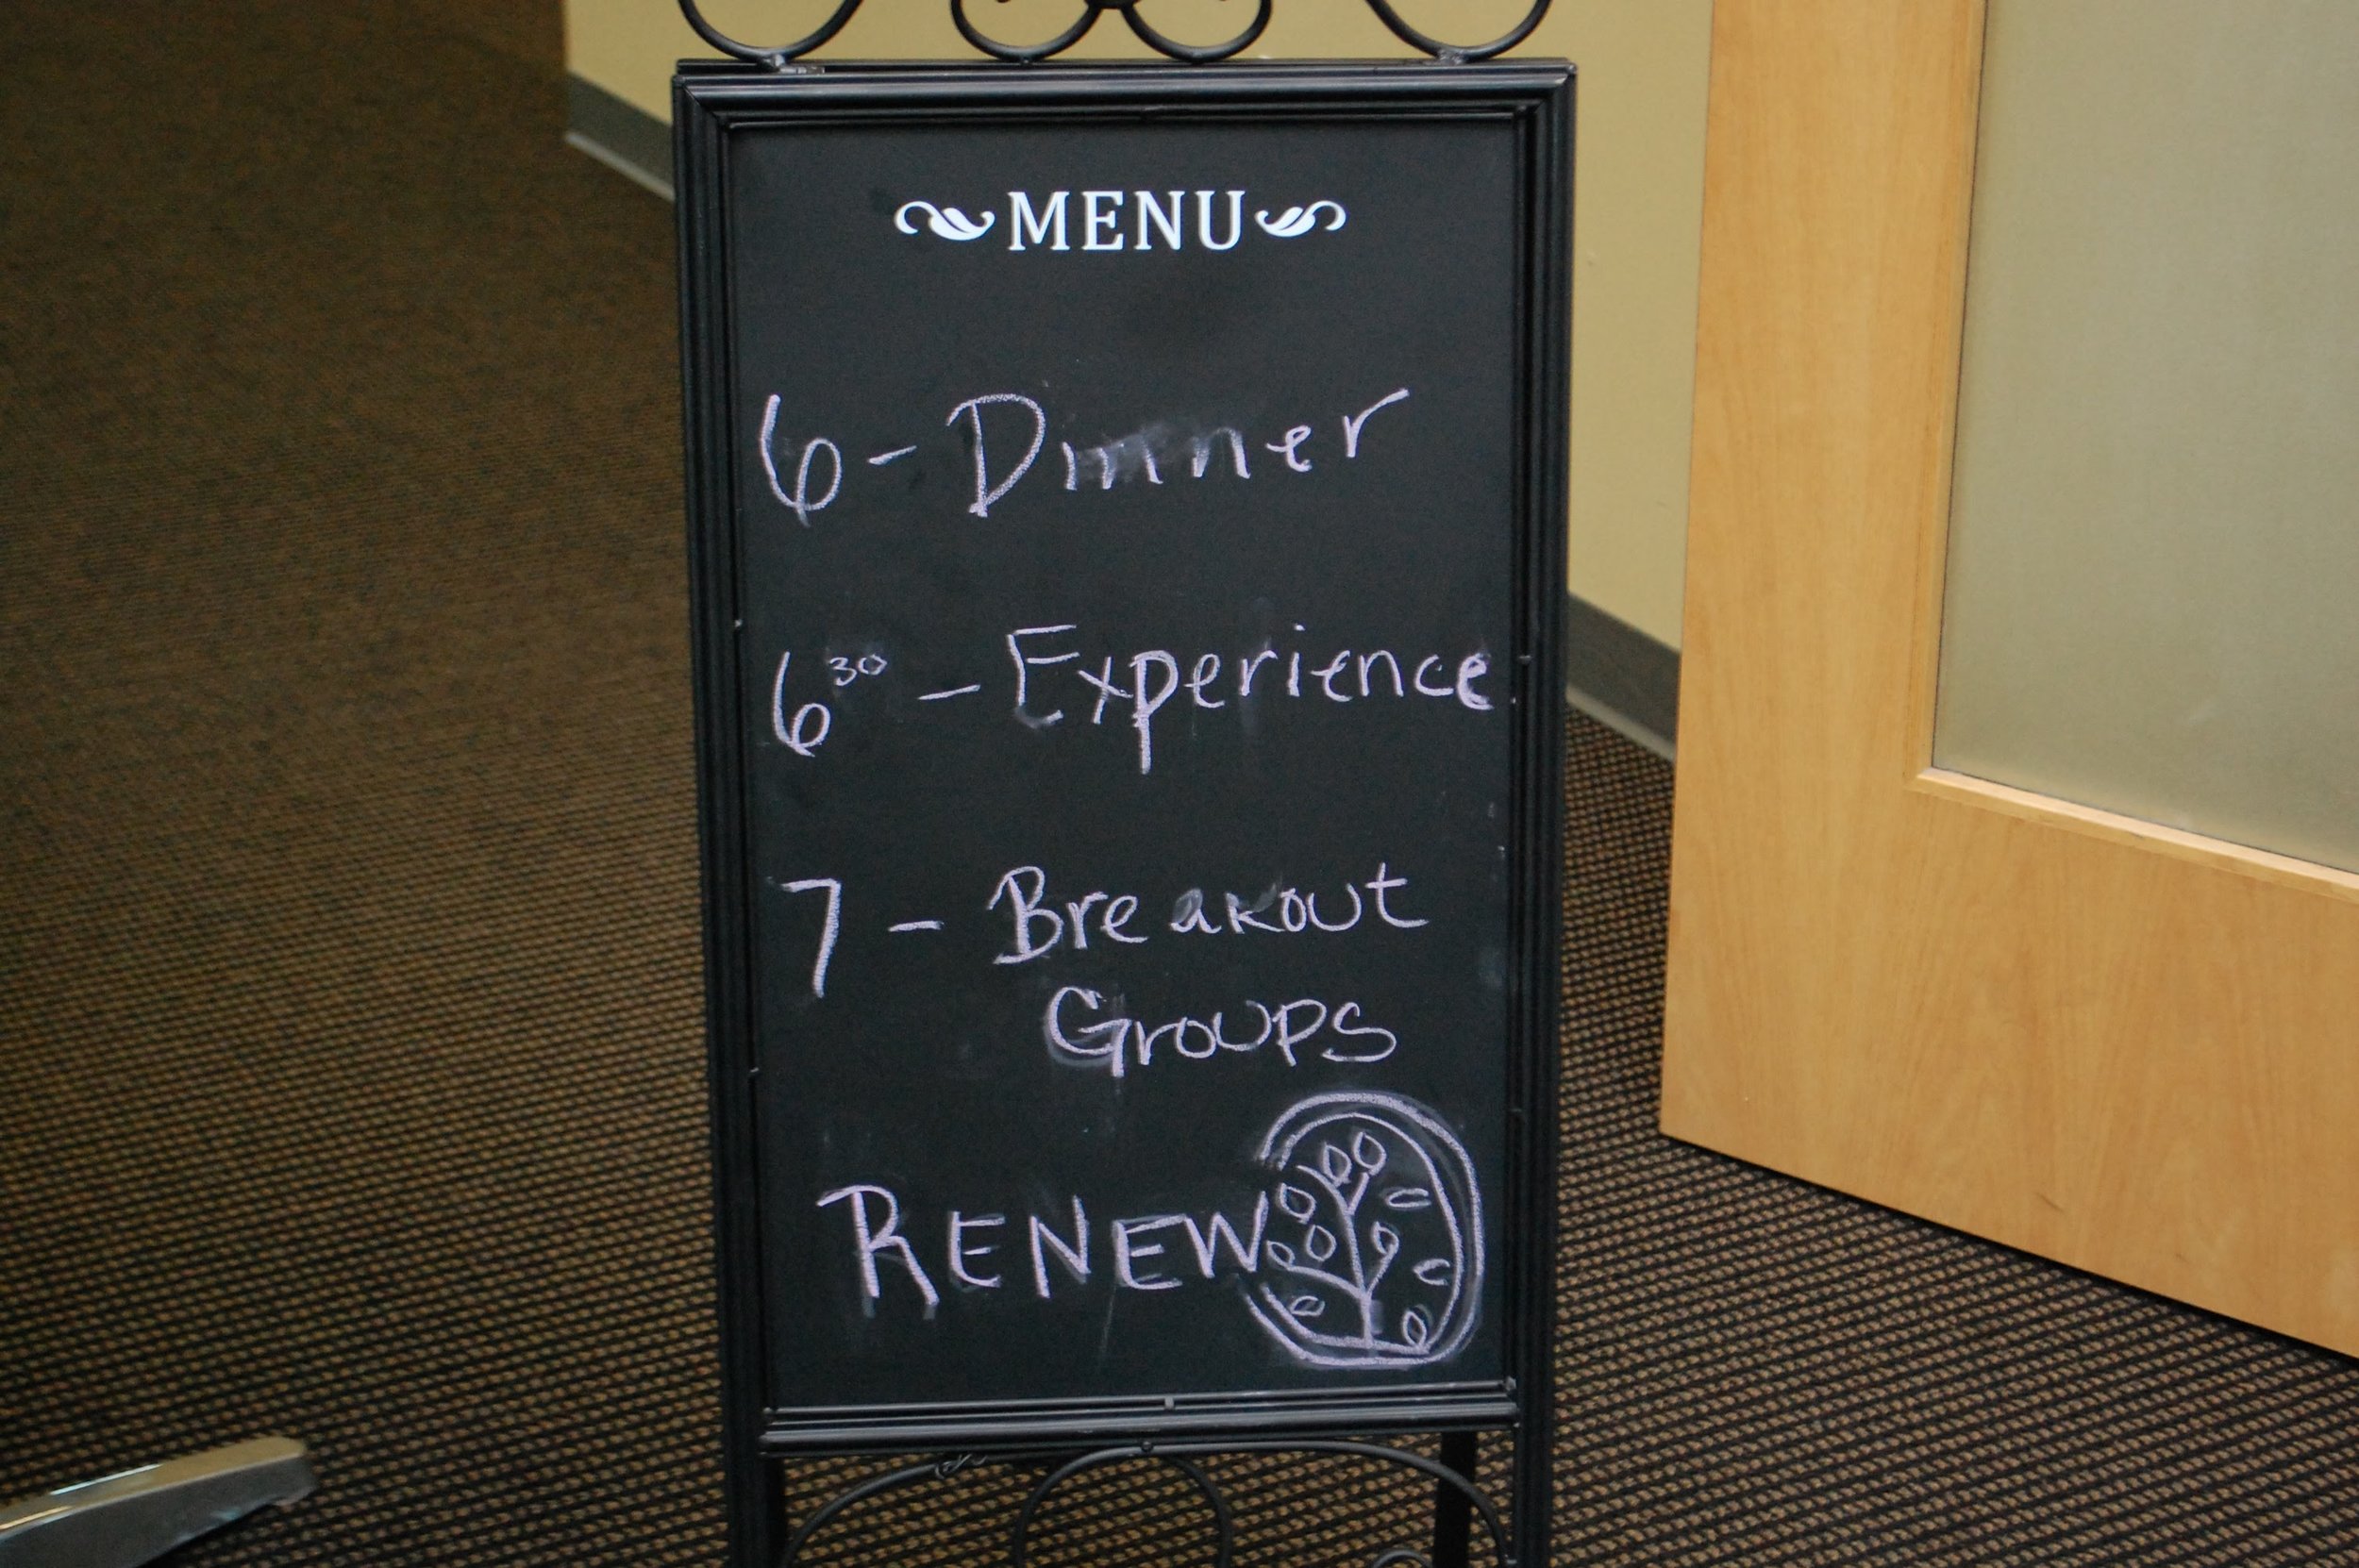 MENU
6 - Dinner
6 30 - Experience
7 - Breakout
Groups
RENEW